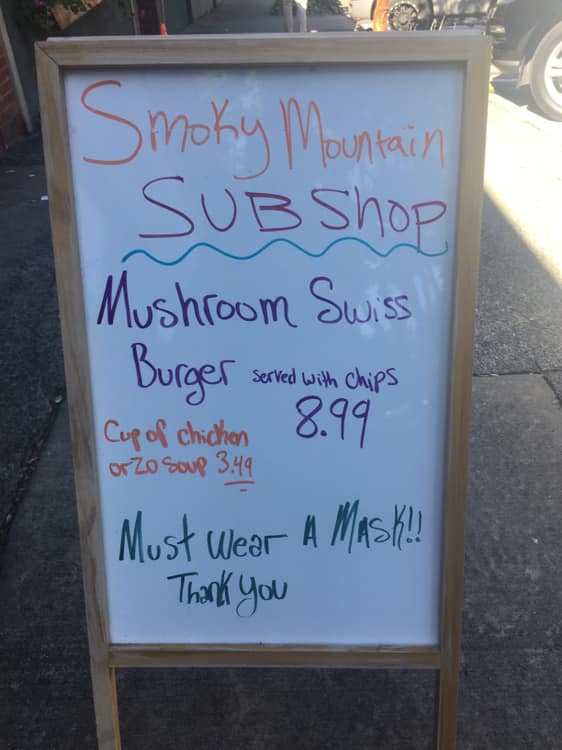 Smoky Mountain
SUB Shop
Mushroom Swiss
Burger served with chips
8.99
Cup of chicken
orzo soup 3.49
Must Wear A Mask!!
Thank you